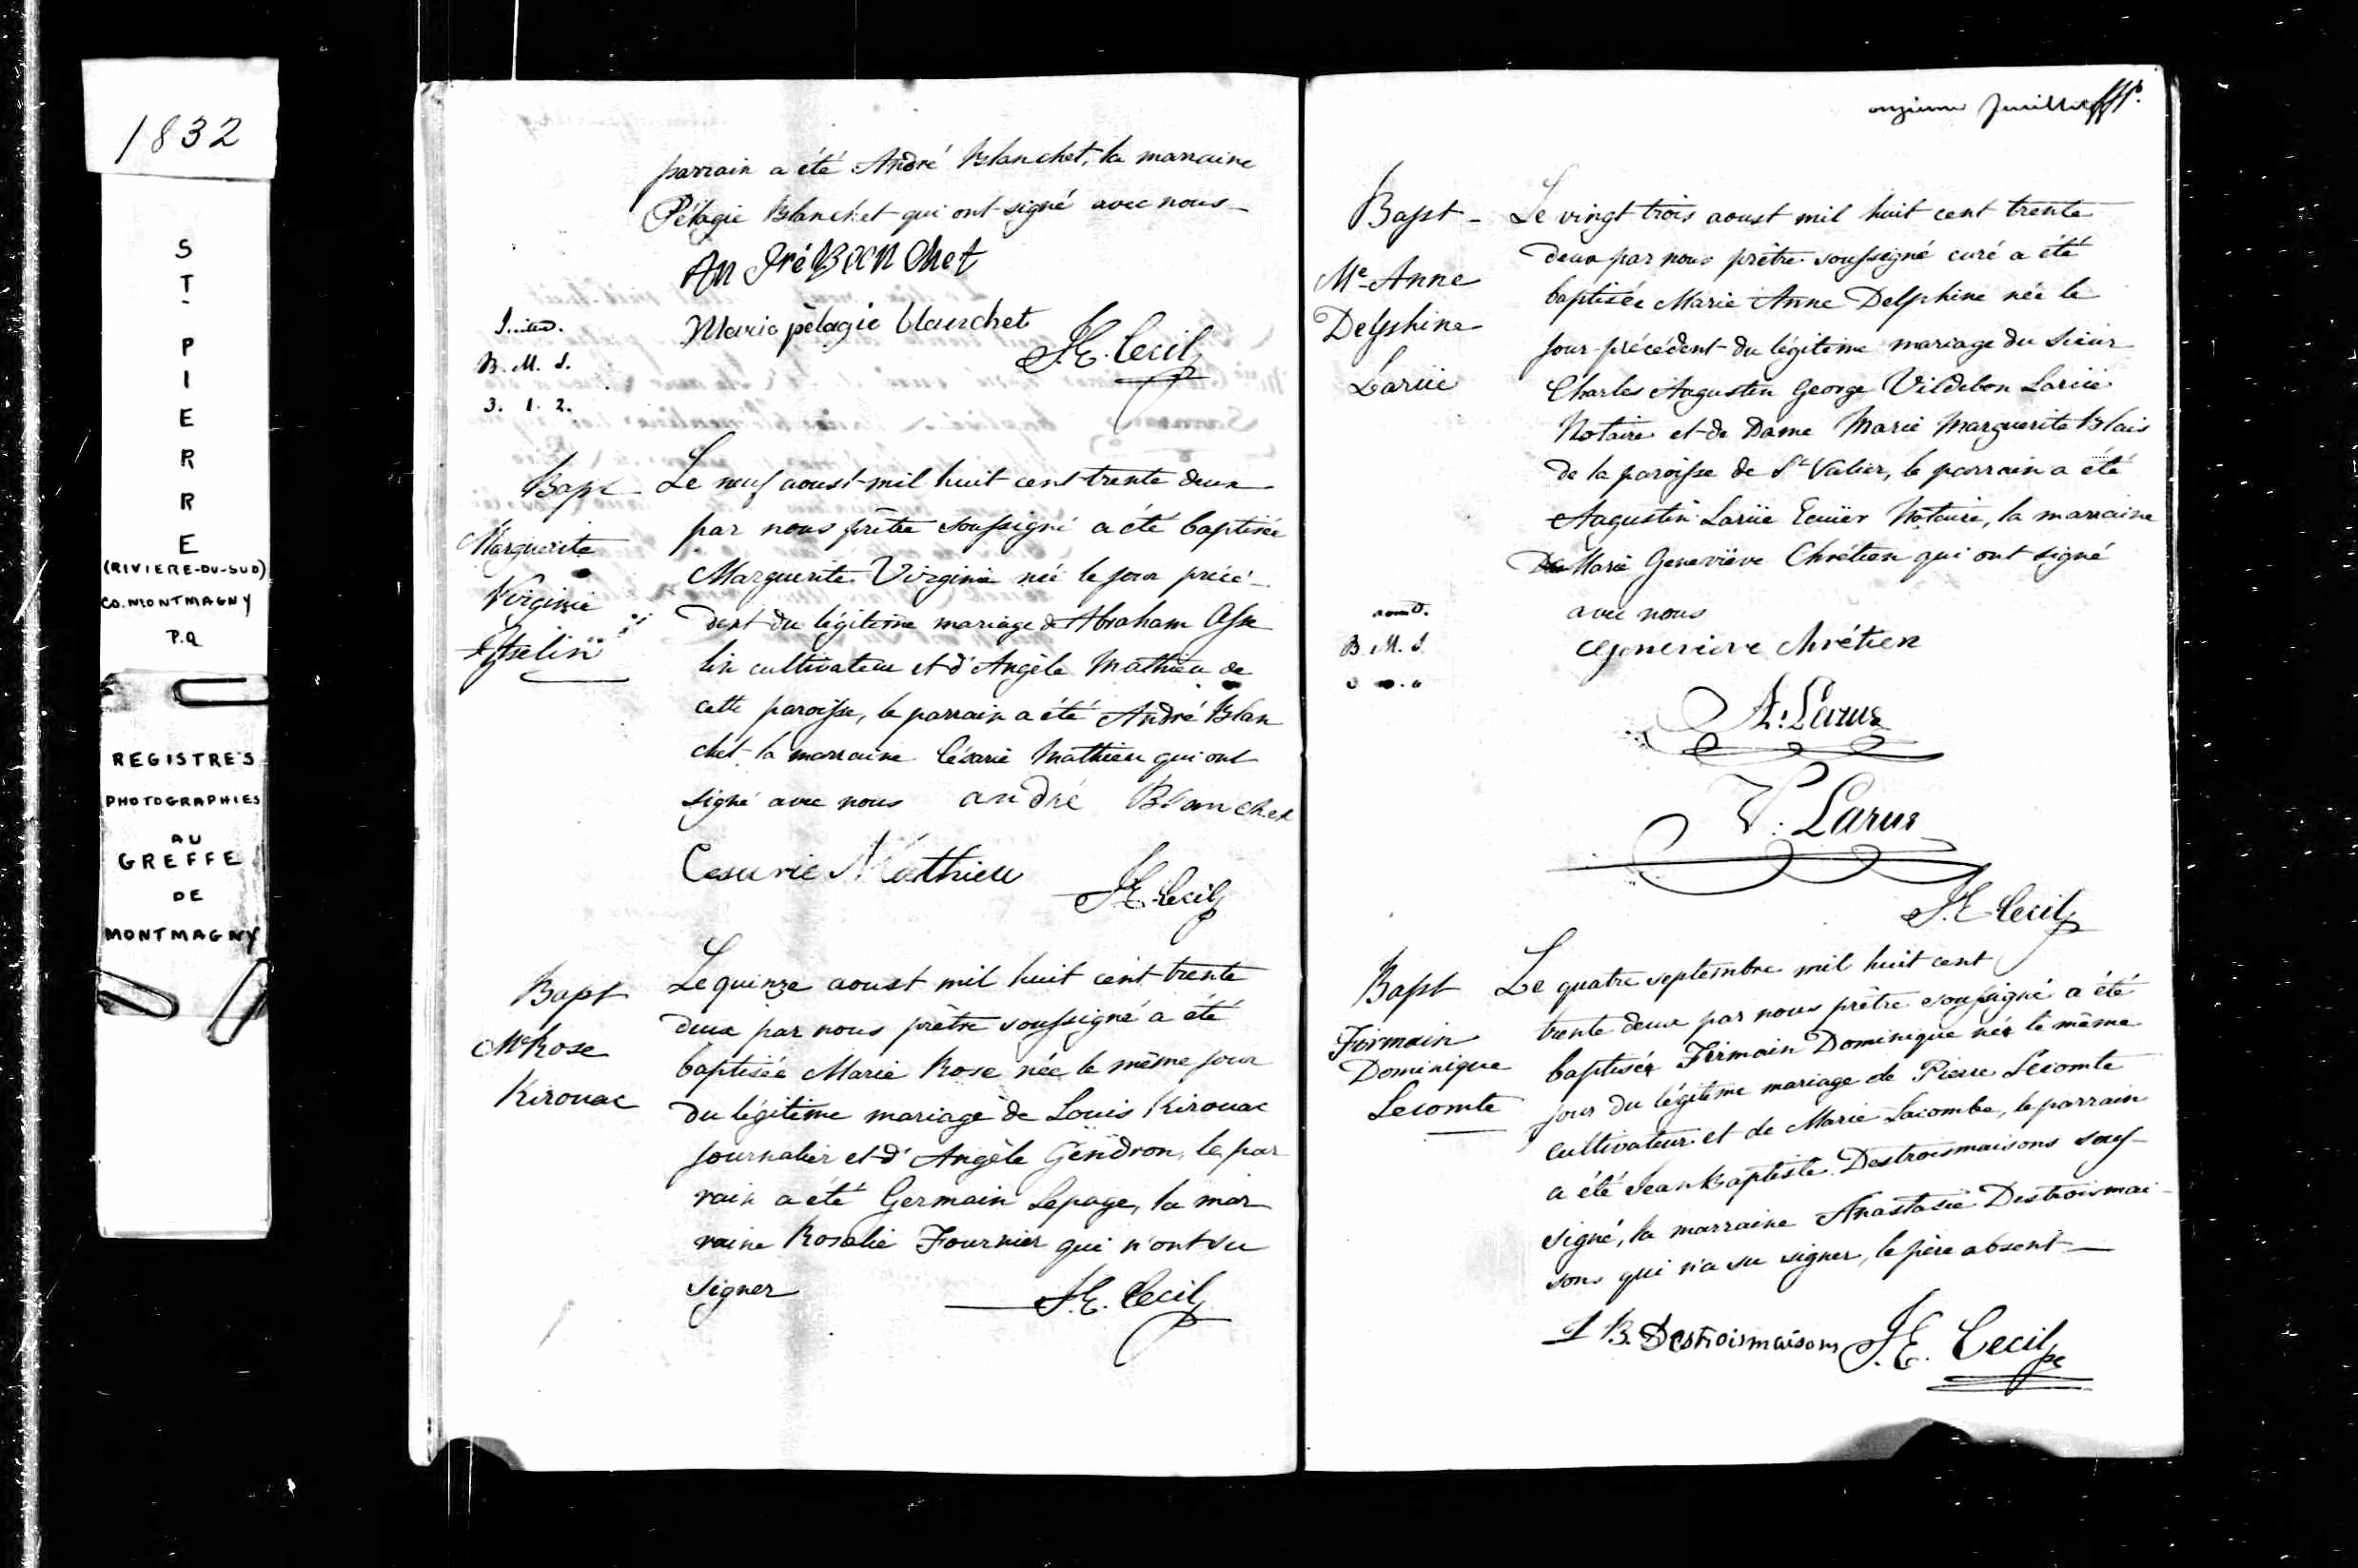 1832
ST PIERRE
(RIVIERE-DU-SUD)
CO. MONTMAGNY
P.Q
REGISTRES
PHOTOGRAPHIES
AU
GREFFE
DE
MONTMAGNY
parrain a été André Blanchet, la marraine
Pélagie Blanchet qui ont signé avec nous
Marie pèlagie blanchet
J.E. Cecil
B. M. S.
3. 1. 2.
Bapt
Marguerite
Virginie
Asselin
Le neuf aoust mil huit cent trente deux
par nous prêtre soussigné a été baptisée
Marguerite Virginie née le jour précé-
dent du légitime mariage de Abraham Asse
lin cultivateur et d'Angèle Mathieu de
cette paroisse, le parrain a été André Blan
chet la marraine Césarie Mathieu qui ont
signé avec nous andré Blanchet
Cesarie Mathieu
J.E. Cecil
Bapt
Me Rose
Kirouac
Le quinze aoust mil huit cent trente
deux par nous prêtre soussigné a été
baptisée Marie Rose née le même jour
du légitime mariage de Louis Kirouac
journalier et d'Angèle Gendron, le par
rain a été Germain Lepage, la mar
raine Rosalie Fournier qui n'ont su
signer
J.E. Cecil
onzieme feuillet
Bapt
Me Anne
Delphine
Larüe
Le vingt trois aoust mil huit cent trente
deux par nous prêtre soussigné curé a été
baptisée Marie Anne Delphine née le
jour précédent du légitime mariage du Sieur
Charles Augustin George Vildebon Larüe
Notaire et de Dame Marie Marguerite Blais
de la paroisse de St Valier, le parrain a été
Augustin Larüe Ecuïer Notaire, la marraine
Marie Geneviève Chrétien qui ont signé
avec nous
B. M. S.
genevieve chrétien
A. Larue
V. Larue
J.E. Cecil
Bapt
Firmain
Dominique
Lecomte
Le quatre septembre mil huit cent
trente deux par nous prêtre soussigné a été
baptisé Firmain Dominique né le même
jour du légitime mariage de Pierre Lecomte
cultivateur et de Marie Lacombe, le parrain
a été Jean Baptiste Destroismaisons sous-
signé, la marraine Anastasie Destroismai-
sons qui n'a su signer, le père absent
J B. Destroismaisons J.E. Cecil